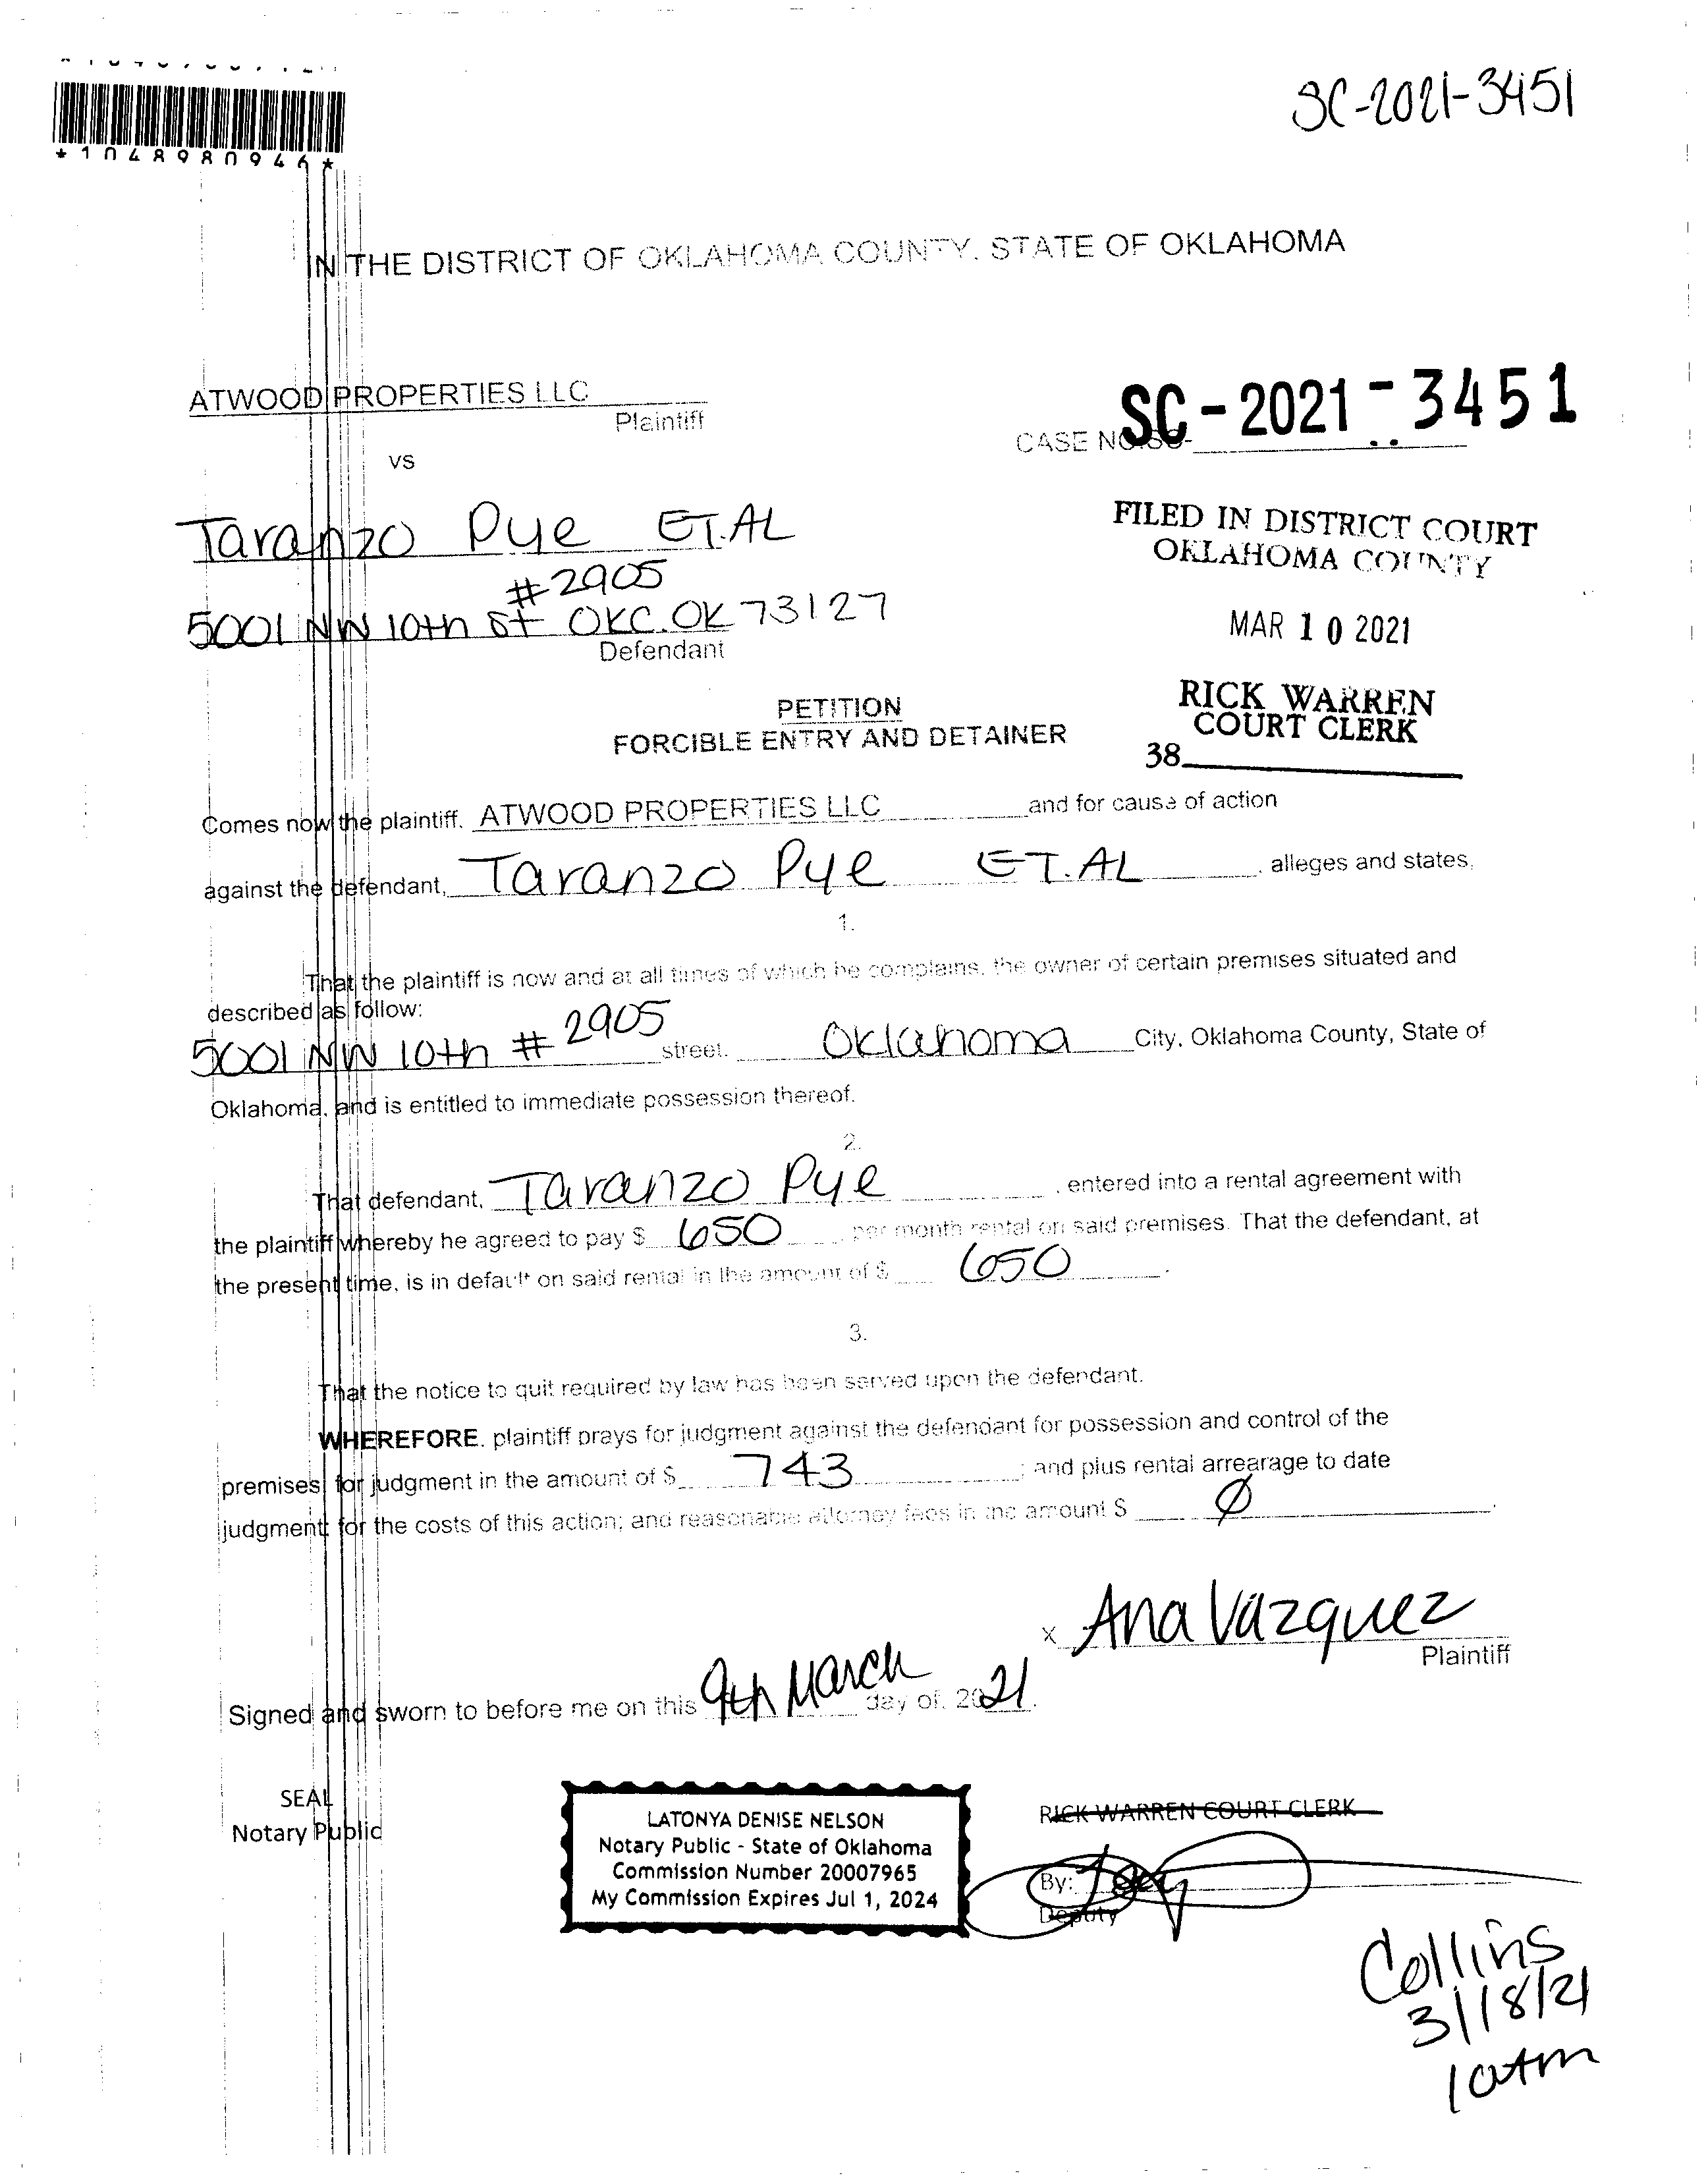 SC-2021-3451
*1048980946*
IN THE DISTRICT OF OKLAHOMA COUNTY, STATE OF OKLAHOMA
ATWOOD PROPERTIES LLC
Plaintiff
SC-2021-3451
CASE NO. SC-
VS
Taranzo Pye ET.AL
#2905
5001 NW 10th St OKC.OK 73127
Defendant
FILED IN DISTRICT COURT
OKLAHOMA COUNTY
MAR 10 2021
RICK WARREN
COURT CLERK
38
PETITION
FORCIBLE ENTRY AND DETAINER
Comes now the plaintiff, ATWOOD PROPERTIES LLC and for cause of action
against the defendant, Taranzo Pye ET.AL, alleges and states,
1.
That the plaintiff is now and at all times of which he complains, the owner of certain premises situated and
described as follow:
5001 NW 10th # 2905 street, Oklahoma City, Oklahoma County, State of
Oklahoma, and is entitled to immediate possession thereof.
2.
That defendant, Taranzo Pye, entered into a rental agreement with
the plaintiff whereby he agreed to pay $ 650 per month rental on said premises. That the defendant, at
the present time, is in default on said rental in the amount of $ 650.
3.
That the notice to quit required by law has been served upon the defendant.
WHEREFORE, plaintiff prays for judgment against the defendant for possession and control of the
premises; for judgment in the amount of $ 743; and plus rental arrearage to date
judgment; for the costs of this action; and reasonable attorney fees in the amount $ Ø.
x Ana Vazquez
Plaintiff
Signed and sworn to before me on this 9th March day of, 2021.
SEAL
Notary Public
LATONYA DENISE NELSON
Notary Public - State of Oklahoma
Commission Number 20007965
My Commission Expires Jul 1, 2024
RICK WARREN COURT CLERK
By:
Deputy
Collins
3/18/21
10Am